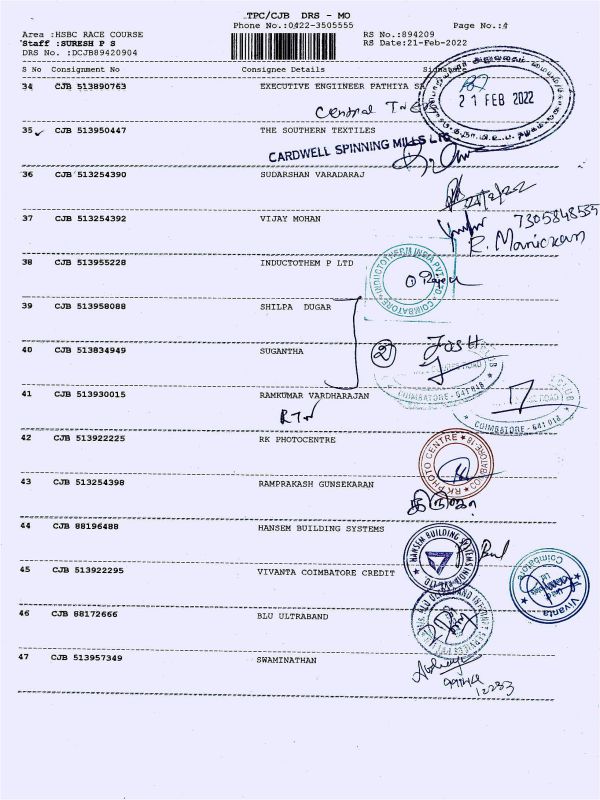 TPC/CJB DRS - MO
Phone No.:0422-3505555 Page No.:4
Area :HSBC RACE COURSE RS No.:894209
Staff :SURESH P S RS Date:21-Feb-2022
DRS No. :DCJB89420904
S No Consignment No Consignee Details Signature
34 CJB 513890763 EXECUTIVE ENGIINEER PATHIYA SA
21 FEB 2022
Central
35 CJB 513950447 THE SOUTHERN TEXTILES
CARDWELL SPINNING MILLS LTD
36 CJB 513254390 SUDARSHAN VARADARAJ
21/2/22
37 CJB 513254392 VIJAY MOHAN
7305848535
R. Manickam
38 CJB 513955228 INDUCTOTHEM P LTD
INDUCTOTHERM INDIA PVT. LTD. COIMBATORE
39 CJB 513958088 SHILPA DUGAR
40 CJB 513834949 SUGANTHA
2
COIMBATORE - 641 018
41 CJB 513930015 RAMKUMAR VARDHARAJAN
COIMBATORE - 641 018
42 CJB 513922225 RK PHOTOCENTRE
RK PHOTO CENTRE
43 CJB 513254398 RAMPRAKASH GUNSEKARAN
44 CJB 88196488 HANSEM BUILDING SYSTEMS
HANSEM BUILDING SYSTEMS
45 CJB 513922295 VIVANTA COIMBATORE CREDIT
Vivanta Coimbatore
46 CJB 88172666 BLU ULTRABAND
47 CJB 513957349 SWAMINATHAN
12233